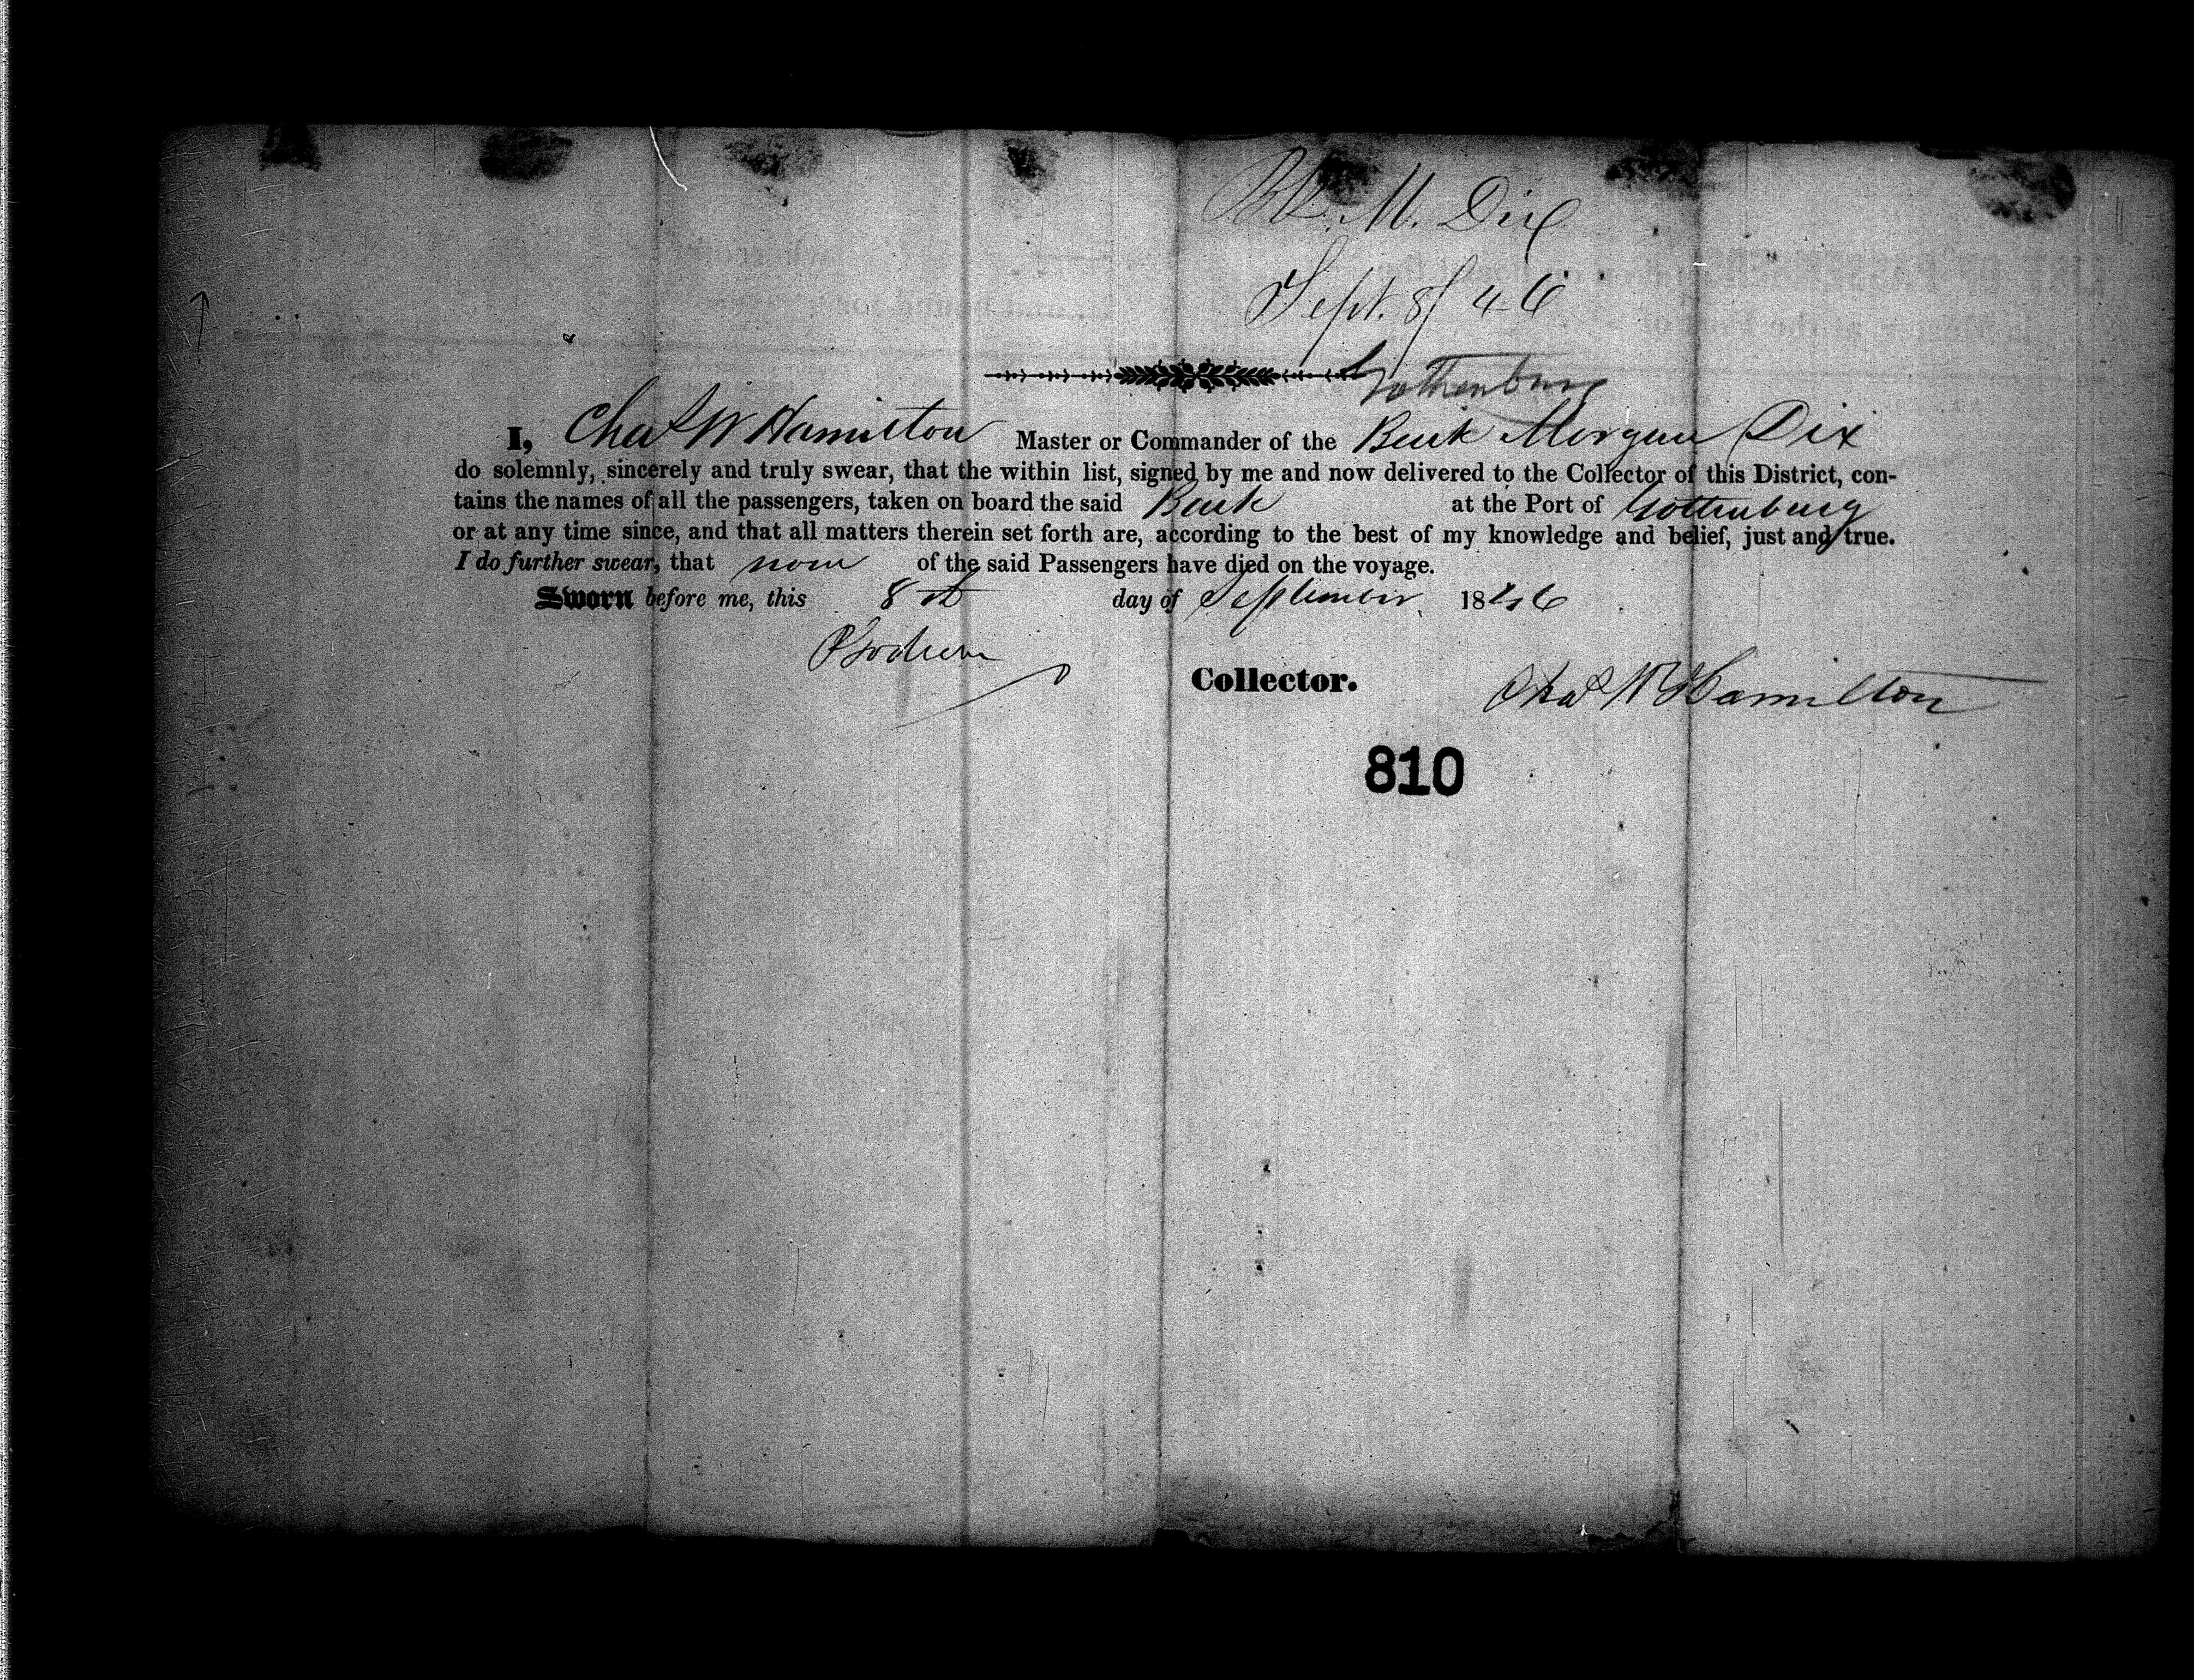 Bk. M. Dix
Sept. 8/46
Gothenburg
I, Chas W Hamilton Master or Commander of the Bark Morgan Dix
do solemnly, sincerely and truly swear, that the within list, signed by me and now delivered to the Collector of this District, con-
tains the names of all the passengers, taken on board the said Bark at the Port of Gottenburg
or at any time since, and that all matters therein set forth are, according to the best of my knowledge and belief, just and true.
I do further swear, that none of the said Passengers have died on the voyage.
Sworn before me, this 8th day of September 1846
Collector. Chas W Hamilton
810